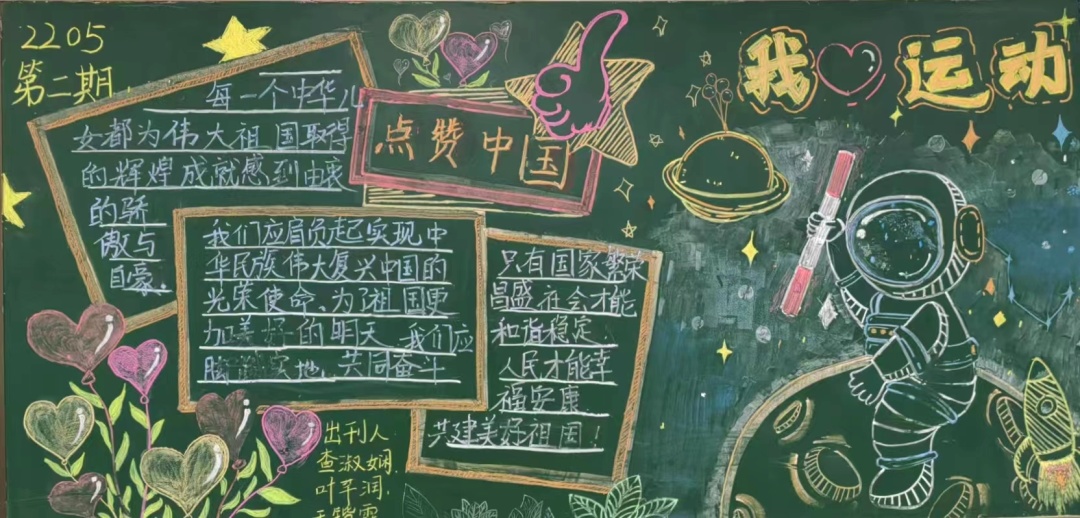 2205
第二期
每一个中华儿
女都为伟大祖国取得
的辉煌成就感到由衷
的骄
傲与
自豪
点赞中国
我们应肩负起实现中
华民族伟大复兴中国的
光荣使命、为了祖国更
加美好的明天,我们应
脚实地,共同奋斗
只有国家繁荣
昌盛,社会才能
和谐稳定
人民才能幸
福安康
共建美好祖国!
出刊人
查淑娴
叶芊润
我 运动